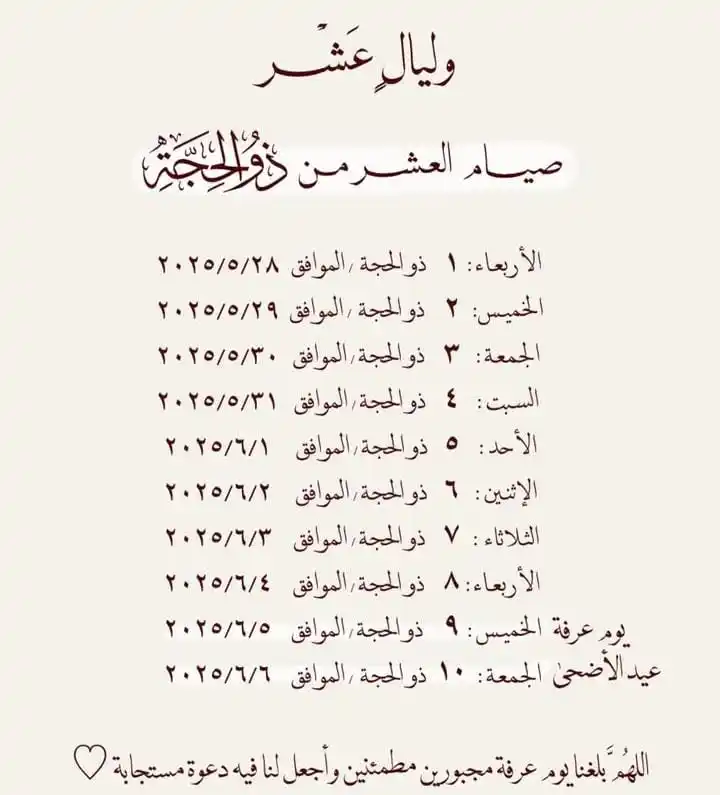 وليالٍ عَشْر
صيام العشر من ذُو الحِجَّةِ
الأربعاء: ١ ذو الحجة /الموافق ٢٠٢٥/٥/٢٨
الخميس: ٢ ذو الحجة /الموافق ٢٠٢٥/٥/٢٩
الجمعة: ٣ ذو الحجة /الموافق ٢٠٢٥/٥/٣٠
السبت: ٤ ذو الحجة /الموافق ٢٠٢٥/٥/٣١
الأحد: ٥ ذو الحجة /الموافق ٢٠٢٥/٦/١
الإثنين: ٦ ذو الحجة /الموافق ٢٠٢٥/٦/٢
الثلاثاء: ٧ ذو الحجة /الموافق ٢٠٢٥/٦/٣
الأربعاء: ٨ ذو الحجة /الموافق ٢٠٢٥/٦/٤
يوم عرفة الخميس: ٩ ذو الحجة /الموافق ٢٠٢٥/٦/٥
عيد الأضحىٰ الجمعة: ١٠ ذو الحجة /الموافق ٢٠٢٥/٦/٦
اللهُمَّ بلغنا يوم عرفة مجبورين مطمئنين وأجعل لنا فيه دعوة مستجابة ♡